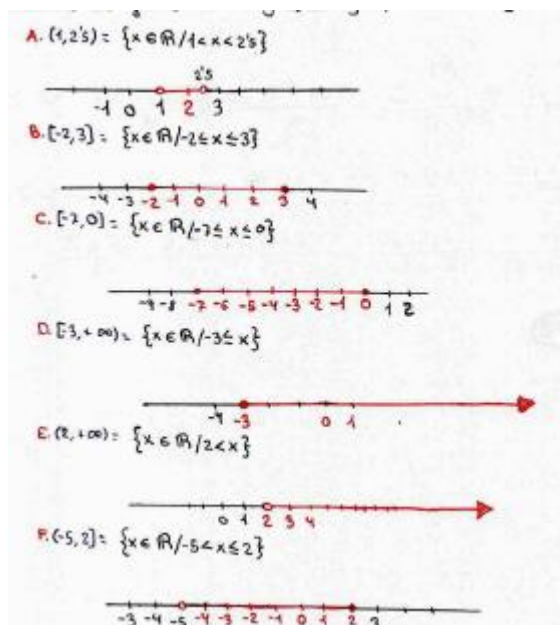 A. (1, 2'5) = {x ∈ ℝ / 1 < x < 2'5}
2'5
-1 0 1 2 3
B. [-2, 3] = {x ∈ ℝ / -2 ≤ x ≤ 3}
-4 -3 -2 -1 0 1 2 3 4
C. [-7, 0] = {x ∈ ℝ / -7 ≤ x ≤ 0}
-9 -8 -7 -6 -5 -4 -3 -2 -1 0 1 2
D. [-3, +∞) = {x ∈ ℝ / -3 ≤ x}
-4 -3 0 1
E. (2, +∞) = {x ∈ ℝ / 2 < x}
0 1 2 3 4
F. (-5, 2] = {x ∈ ℝ / -5 < x ≤ 2}
-3 -4 -5 -4 -3 -2 -1 0 1 2 3